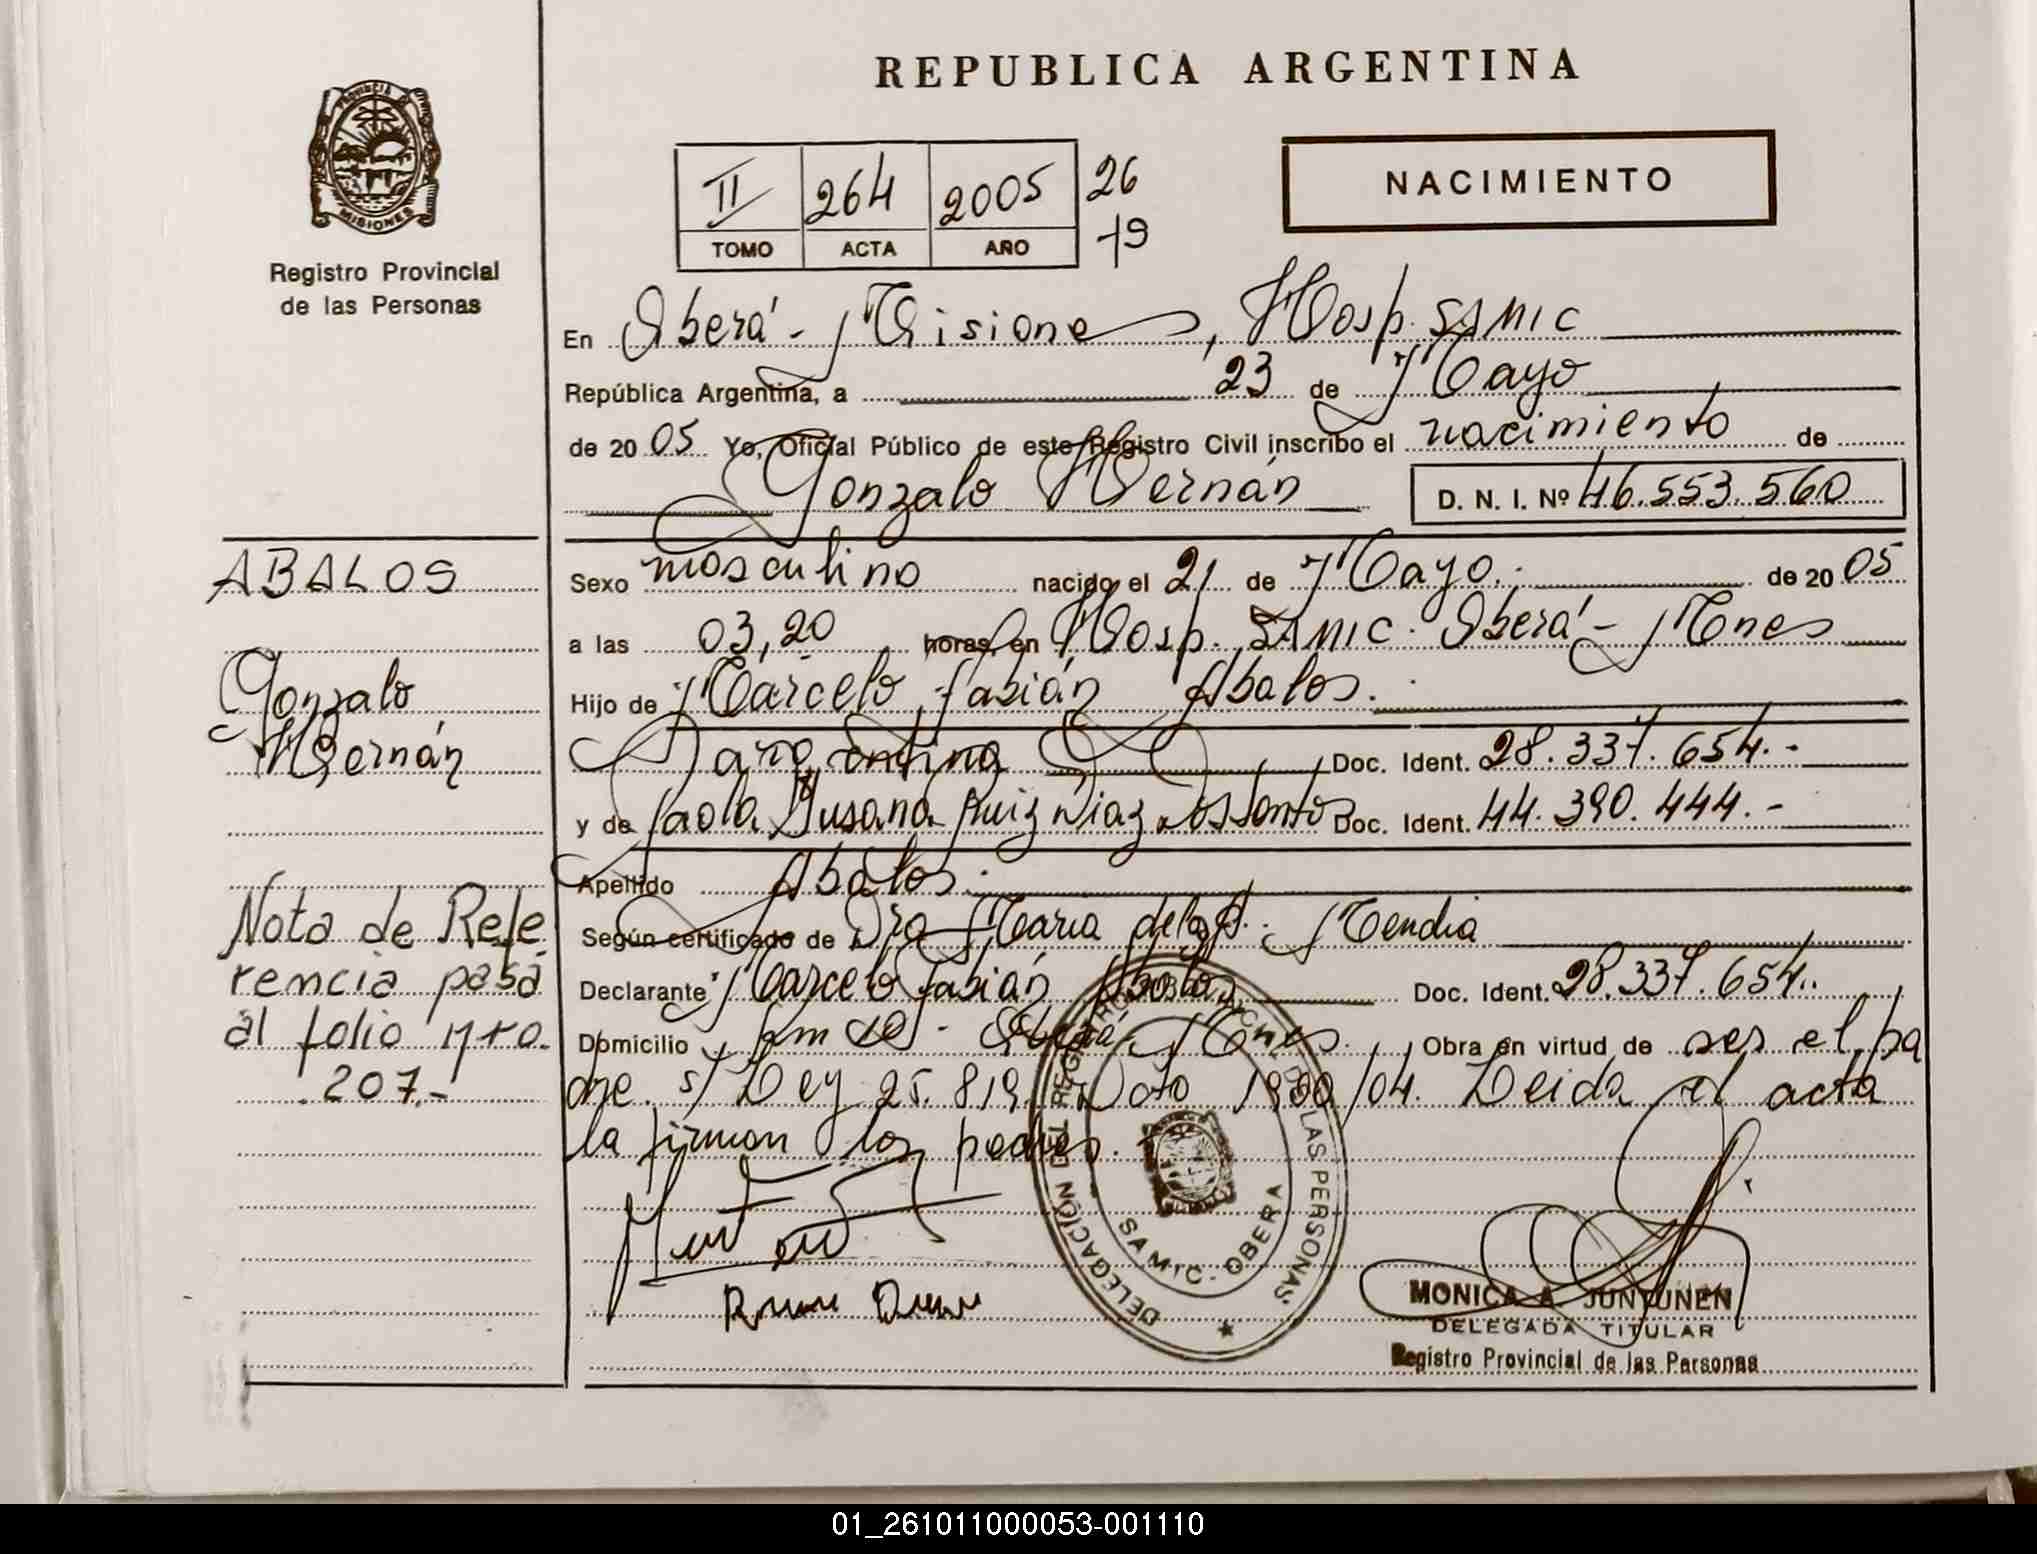 REPUBLICA ARGENTINA
PROVINCIA DE MISIONES
Registro Provincial
de las Personas
II 264 2005 26
TOMO ACTA AÑO 19
NACIMIENTO
En Oberá - Misiones, Hosp. SAMIC
República Argentina, a 23 de Mayo
de 2005 Yo, Oficial Público de este Registro Civil inscribo el nacimiento de
Gonzalo Hernán D. N. I. Nº 46.553.560
ABALOS
Gonzalo
Hernán
Nota de Refe
rencia pasa
al folio nro.
207.-
Sexo masculino nacido el 21 de Mayo.- de 2005
a las 03,20 horas, en Hosp. SAMIC. Oberá - Mnes
Hijo de Marcelo Fabián Abalos.
argentina Doc. Ident. 28.337.654.-
y de Paola Susana Ruiz Diaz Dos Santos Doc. Ident. 44.390.444.-
Apellido Abalos.
Según certificado de Dra Maria de los A. Mendia
Declarante Marcelo Fabián Abalos Doc. Ident. 28.337.654.
Domicilio Km 10 - Oberá, Mnes. Obra en virtud de ser el pa
dre. s/ Ley 25.819. Dcto 1900/04. Leida el acta
la firman los padres.
DELEGACIÓN DEL REGISTRO LAS PERSONAS
SAMIC - OBERA
MONICA A. JUNTUNEN
DELEGADA TITULAR
Registro Provincial de las Personas
01_261011000053-001110